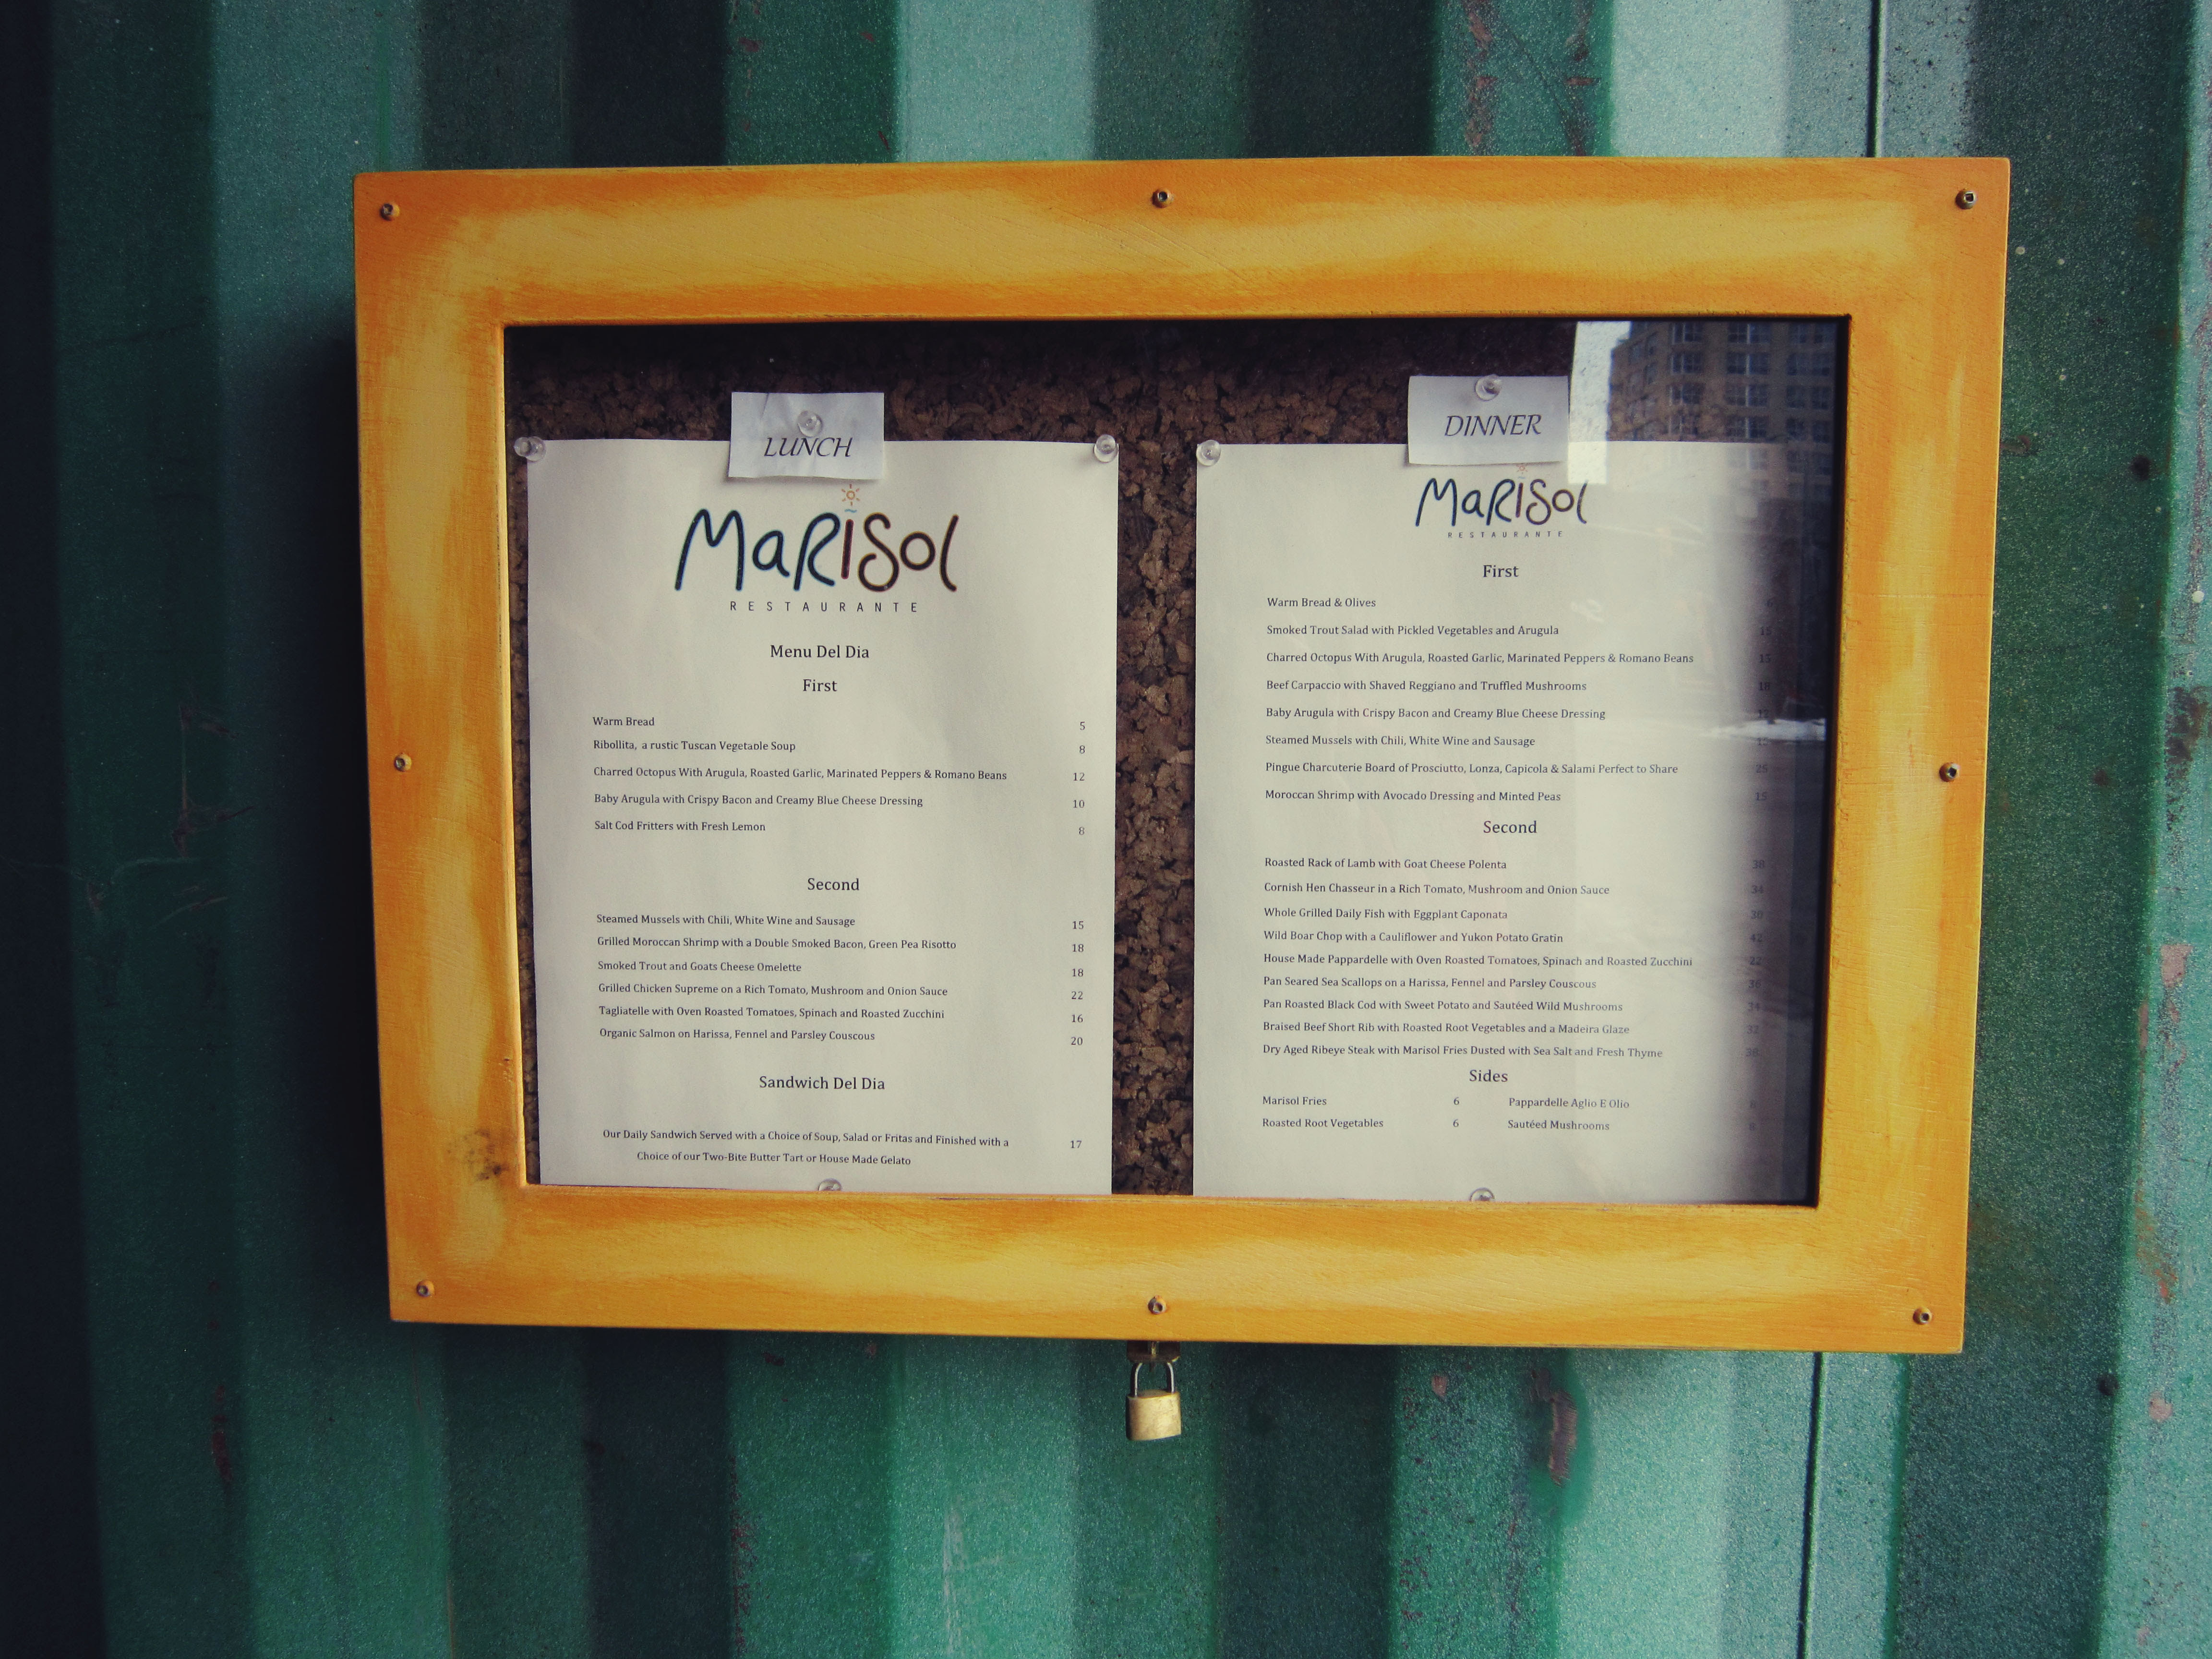 LUNCH
MaRiSol
RESTAURANTE
Menu Del Dia
First
Warm Bread 5
Ribollita, a rustic Tuscan Vegetable Soup 8
Charred Octopus With Arugula, Roasted Garlic, Marinated Peppers & Romano Beans 12
Baby Arugula with Crispy Bacon and Creamy Blue Cheese Dressing 10
Salt Cod Fritters with Fresh Lemon 8
Second
Steamed Mussels with Chili, White Wine and Sausage 15
Grilled Moroccan Shrimp with a Double Smoked Bacon, Green Pea Risotto 18
Smoked Trout and Goats Cheese Omelette 18
Grilled Chicken Supreme on a Rich Tomato, Mushroom and Onion Sauce 22
Tagliatelle with Oven Roasted Tomatoes, Spinach and Roasted Zucchini 16
Organic Salmon on Harissa, Fennel and Parsley Couscous 20
Sandwich Del Dia
Our Daily Sandwich Served with a Choice of Soup, Salad or Fritas and Finished with a 17
Choice of our Two-Bite Butter Tart or House Made Gelato
DINNER
MaRiSol
RESTAURANTE
First
Warm Bread & Olives
Smoked Trout Salad with Pickled Vegetables and Arugula
Charred Octopus With Arugula, Roasted Garlic, Marinated Peppers & Romano Beans
Beef Carpaccio with Shaved Reggiano and Truffled Mushrooms
Baby Arugula with Crispy Bacon and Creamy Blue Cheese Dressing
Steamed Mussels with Chili, White Wine and Sausage
Pingue Charcuterie Board of Prosciutto, Lonza, Capicola & Salami Perfect to Share
Moroccan Shrimp with Avocado Dressing and Minted Peas 15
Second
Roasted Rack of Lamb with Goat Cheese Polenta 38
Cornish Hen Chasseur in a Rich Tomato, Mushroom and Onion Sauce 34
Whole Grilled Daily Fish with Eggplant Caponata
Wild Boar Chop with a Cauliflower and Yukon Potato Gratin 42
House Made Pappardelle with Oven Roasted Tomatoes, Spinach and Roasted Zucchini 22
Pan Seared Sea Scallops on a Harissa, Fennel and Parsley Couscous
Pan Roasted Black Cod with Sweet Potato and Sautéed Wild Mushrooms 34
Braised Beef Short Rib with Roasted Root Vegetables and a Madeira Glaze 32
Dry Aged Ribeye Steak with Marisol Fries Dusted with Sea Salt and Fresh Thyme 38
Sides
Marisol Fries 6 Pappardelle Aglio E Olio
Roasted Root Vegetables 6 Sautéed Mushrooms